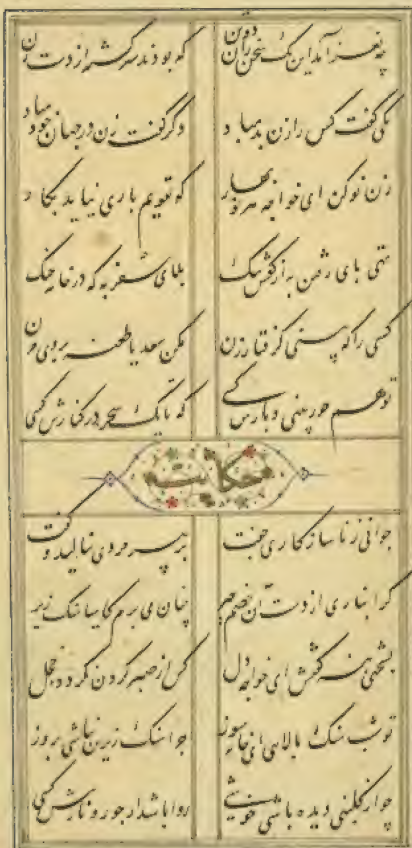 چه نغز آمد این یک سخن زان دو تن که بودند سرگشته از دست زن
یکی گفت کس را زن بد مباد دگر گفت زن در جهان خود مباد
زن نو کن ای خواجه هر نوبهار که تقویم پاری نیاید بکار
تهی پای رفتن به از کفش تنگ بلای سفر به که در خانه جنگ
کسی را که بینی گرفتار زن مکن سعدیا طعنه بر وی مزن
تو هم جور بینی و بارش کشی که تا یک سحر در کنارش کشی
حکایت
جوانی زناسازکاری جفت بر پیر مردی بنالید و گفت
گرانباری از دست آن خصم چیر چنان می برم کاسیا سنک زیر
بسختی بنه گفتش ای خواجه دل کس از صبر کردن نکردد خجل
تو شب سنک بالای ای خانه سوز چرا سنک زیرین نباشی بروز
چو از گلبنی دیده باشی خوشی روا باشد ار جور و نازش کشی